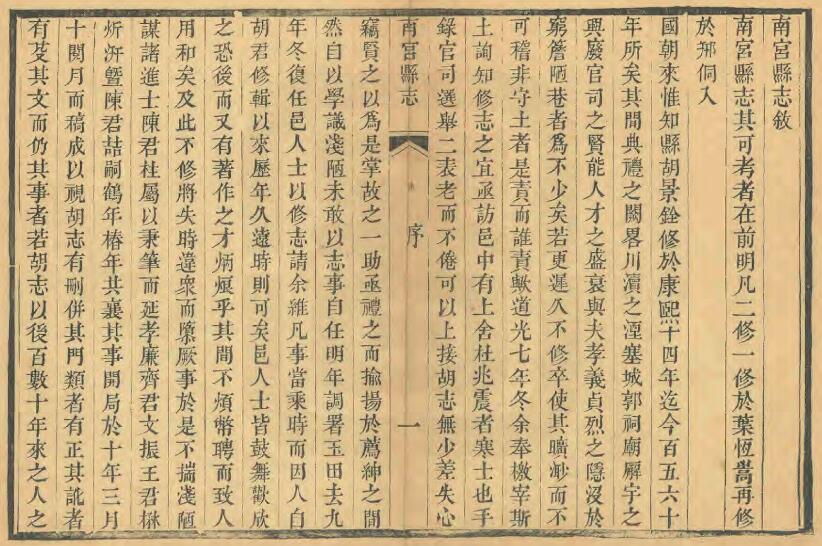 南宮縣志敘
南宮縣志其可考者在前明凡二修一修於葉恆嵩再修
於邢侗入
國朝來惟知縣胡景銓修於康熙十四年迄今百五六十
年所矣其間典禮之闕畧川瀆之湮塞城郭祠廟廨宇之
興廢官司之賢能人才之盛衰與夫孝義貞烈之隱沒於
窮簷陋巷者為不少矣若更遲久不修卒使其曠渺而不
可稽非守土者是責而誰責歟道光七年冬余奉檄宰斯
土詢知修志之宜亟訪邑中有上舍杜兆震者寒士也手
錄官司選舉二表老而不倦可以上接胡志無少差失心
南宮縣志
序
一
竊賢之以為是掌故之一助亟禮之而揄揚於薦紳之間
然自以學識淺陋未敢以志事自任明年調署玉田去九
年冬復任邑人士以修志請余維凡事當乘時而因人自
胡君修輯以來歷年久遠時則可矣邑人士皆鼓舞歡欣
之恐後而又有著作之才炳煥乎其間不煩幣聘而致人
用和矣及此不修將失時違眾而隳厥事於是不揣淺陋
謀諸進士陳君柱屬以秉筆而延孝廉齊君文振王君楙
炘沂暨陳君喆嗣鶴年椿年共襄其事開局於十年三月
十閱月而稿成以視胡志有刪併其門類者有正其訛者
有芟其文而仍其事者若胡志以後百數十年來之人之